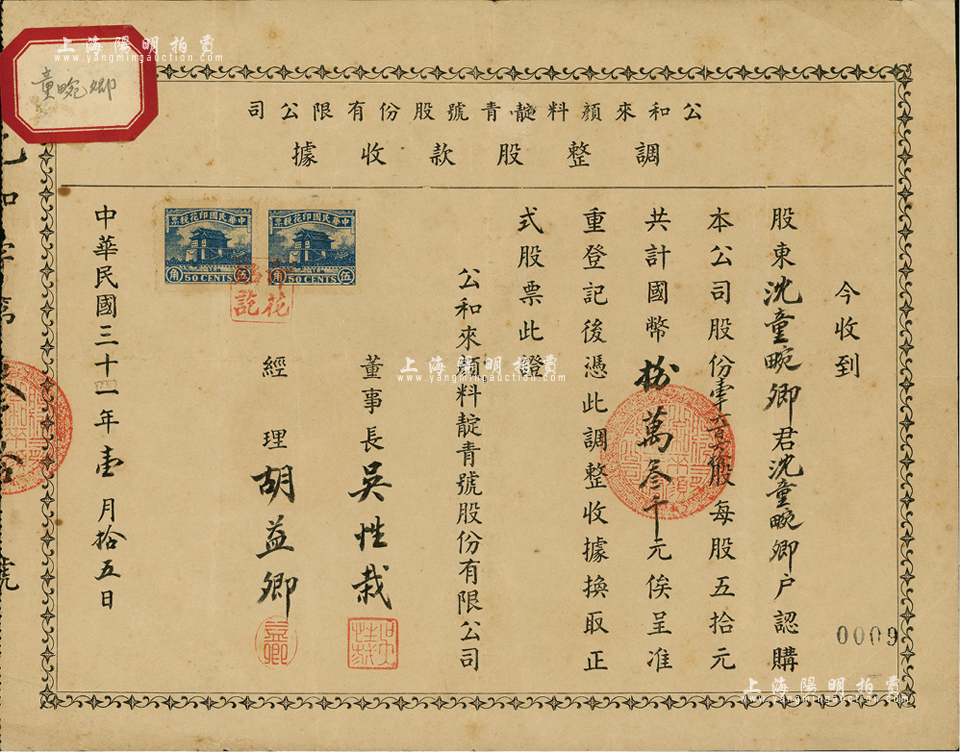 上海陽明拍賣
www.yangmingauction.com
童畹卿
公和來顏料靛青號股份有限公司
調整股款收據
今收到
股東沈童畹卿君沈童畹卿户認購
本公司股份壹股每股五拾元
共計國幣捌萬叁千元俟呈准
重登記後憑此調整收據換取正
式股票此證
公和來顏料靛青號股份有限公司
董事長吳性栽
吳性栽
經理胡益卿
益卿
中華民國印花稅票
伍角
50 CENTS
中華民國印花稅票
伍角
50 CENTS
中華民國三十四年壹月拾五日
字第
號
0009
上海陽明拍賣
www.yangmingauction.com
上海陽明拍賣
www.yangmingauction.com